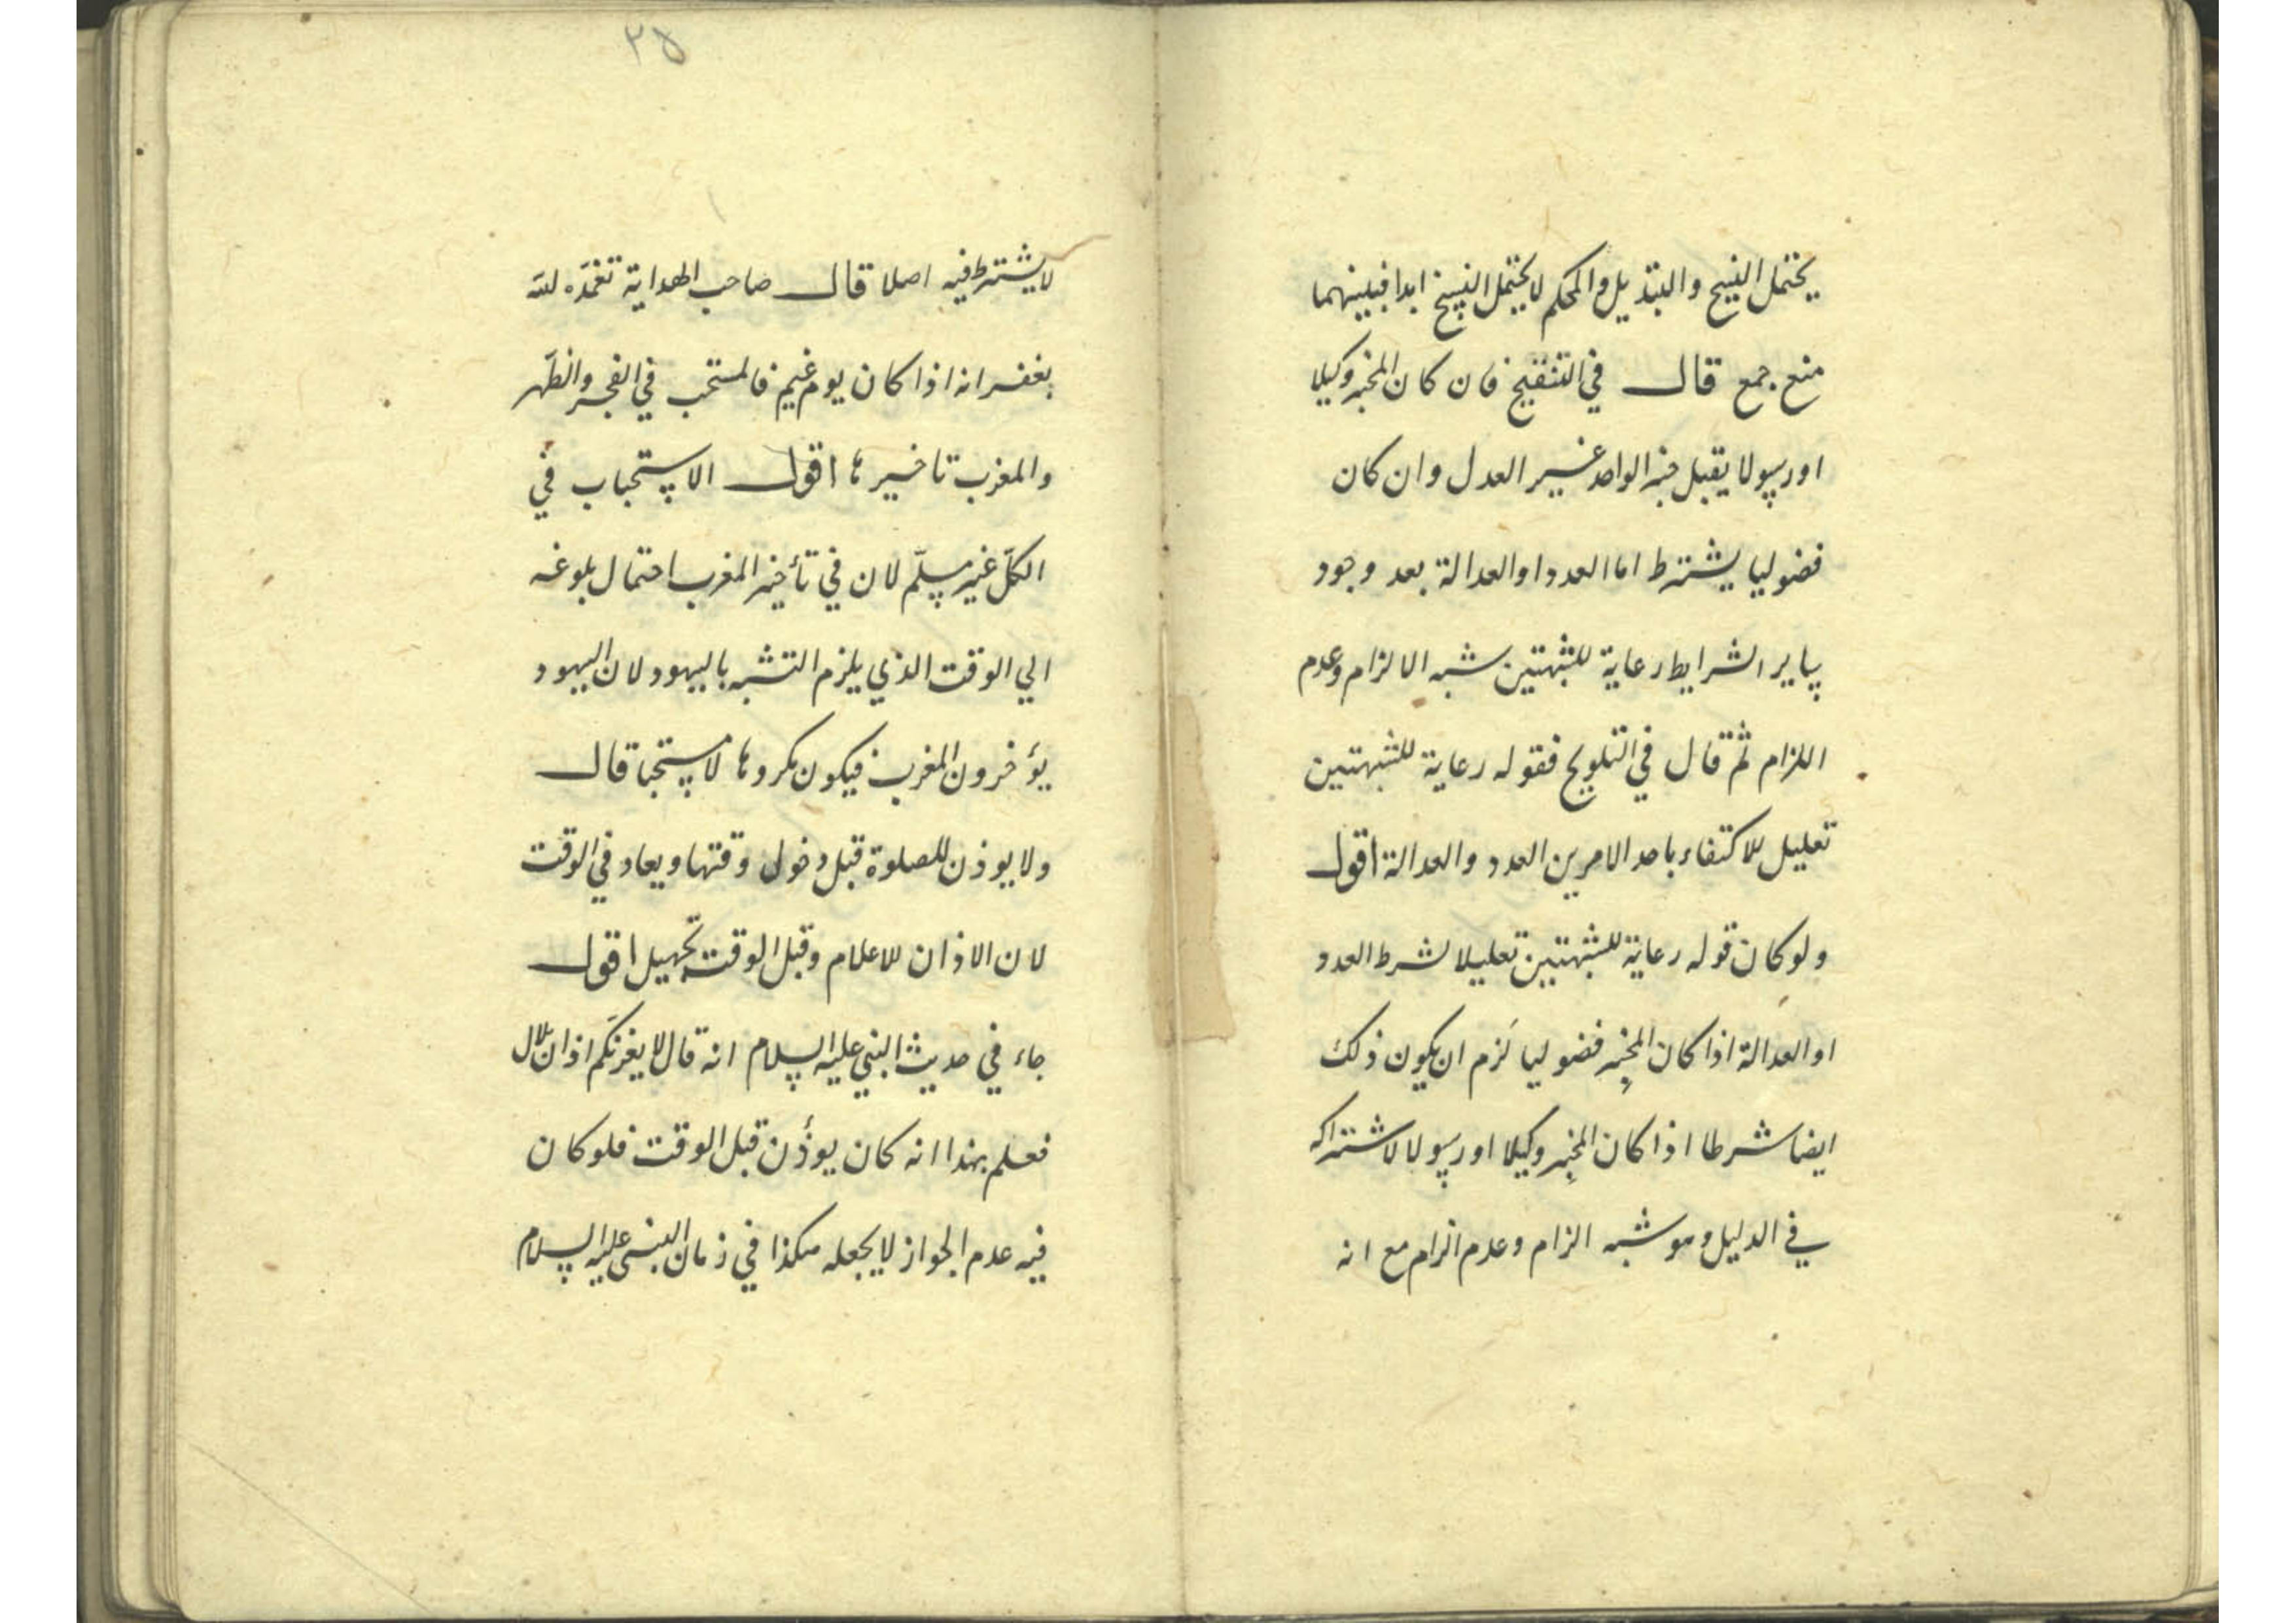 يحتمل النسخ والتبديل والمحكم لا يحتمل النسخ ابدا فبينهما
منع جمع قال في التنقيح فان كان المخبر وكيلا
او رسولا يقبل خبر الواحد غير العدل وان كان
فضوليا يشترط اما العدد او العدالة بعد وجود
ساير الشرايط رعاية للشبهتين شبه الالزام وعدم
اللزام ثم قال في التلويح فقوله رعاية للشبهتين
تعليل للاكتفاء باحد الامرين العدد والعدالة اقول
ولو كان قوله رعاية للشبهتين تعليلا لشرط العدد
او العدالة اذا كان المخبر فضوليا لزم ان يكون ذلك
ايضا شرطا اذا كان المخبر وكيلا او رسولا لاشتراكه
في الدليل وهو شبه الزام وعدم الزام مع انه
٣٥
لا يشترط فيه اصلا قال صاحب الهداية تغمده لله
بغفرانه اذا كان يوم غيم فالمستحب في الفجر والظهر
والمغرب تاخيرها اقول الاستحباب في
الكلّ غير مسلّم لان في تأخير المغرب احتمال بلوغه
الي الوقت الذي يلزم التشبه باليهود لان اليهود
يؤخرون المغرب فيكون مكروها لا مستحبا قال
ولا يوذن للصلوة قبل دخول وقتها ويعاد في الوقت
لان الاذان للاعلام وقبل الوقت تجهيل اقول
جاء في حديث النبي عليه السلام انه قال لا يغرنكم اذان بلال
فعلم بهذا انه كان يوذّن قبل الوقت فلو كان
فيه عدم الجواز لا يجعله هكذا في زمان النبي عليه السلام